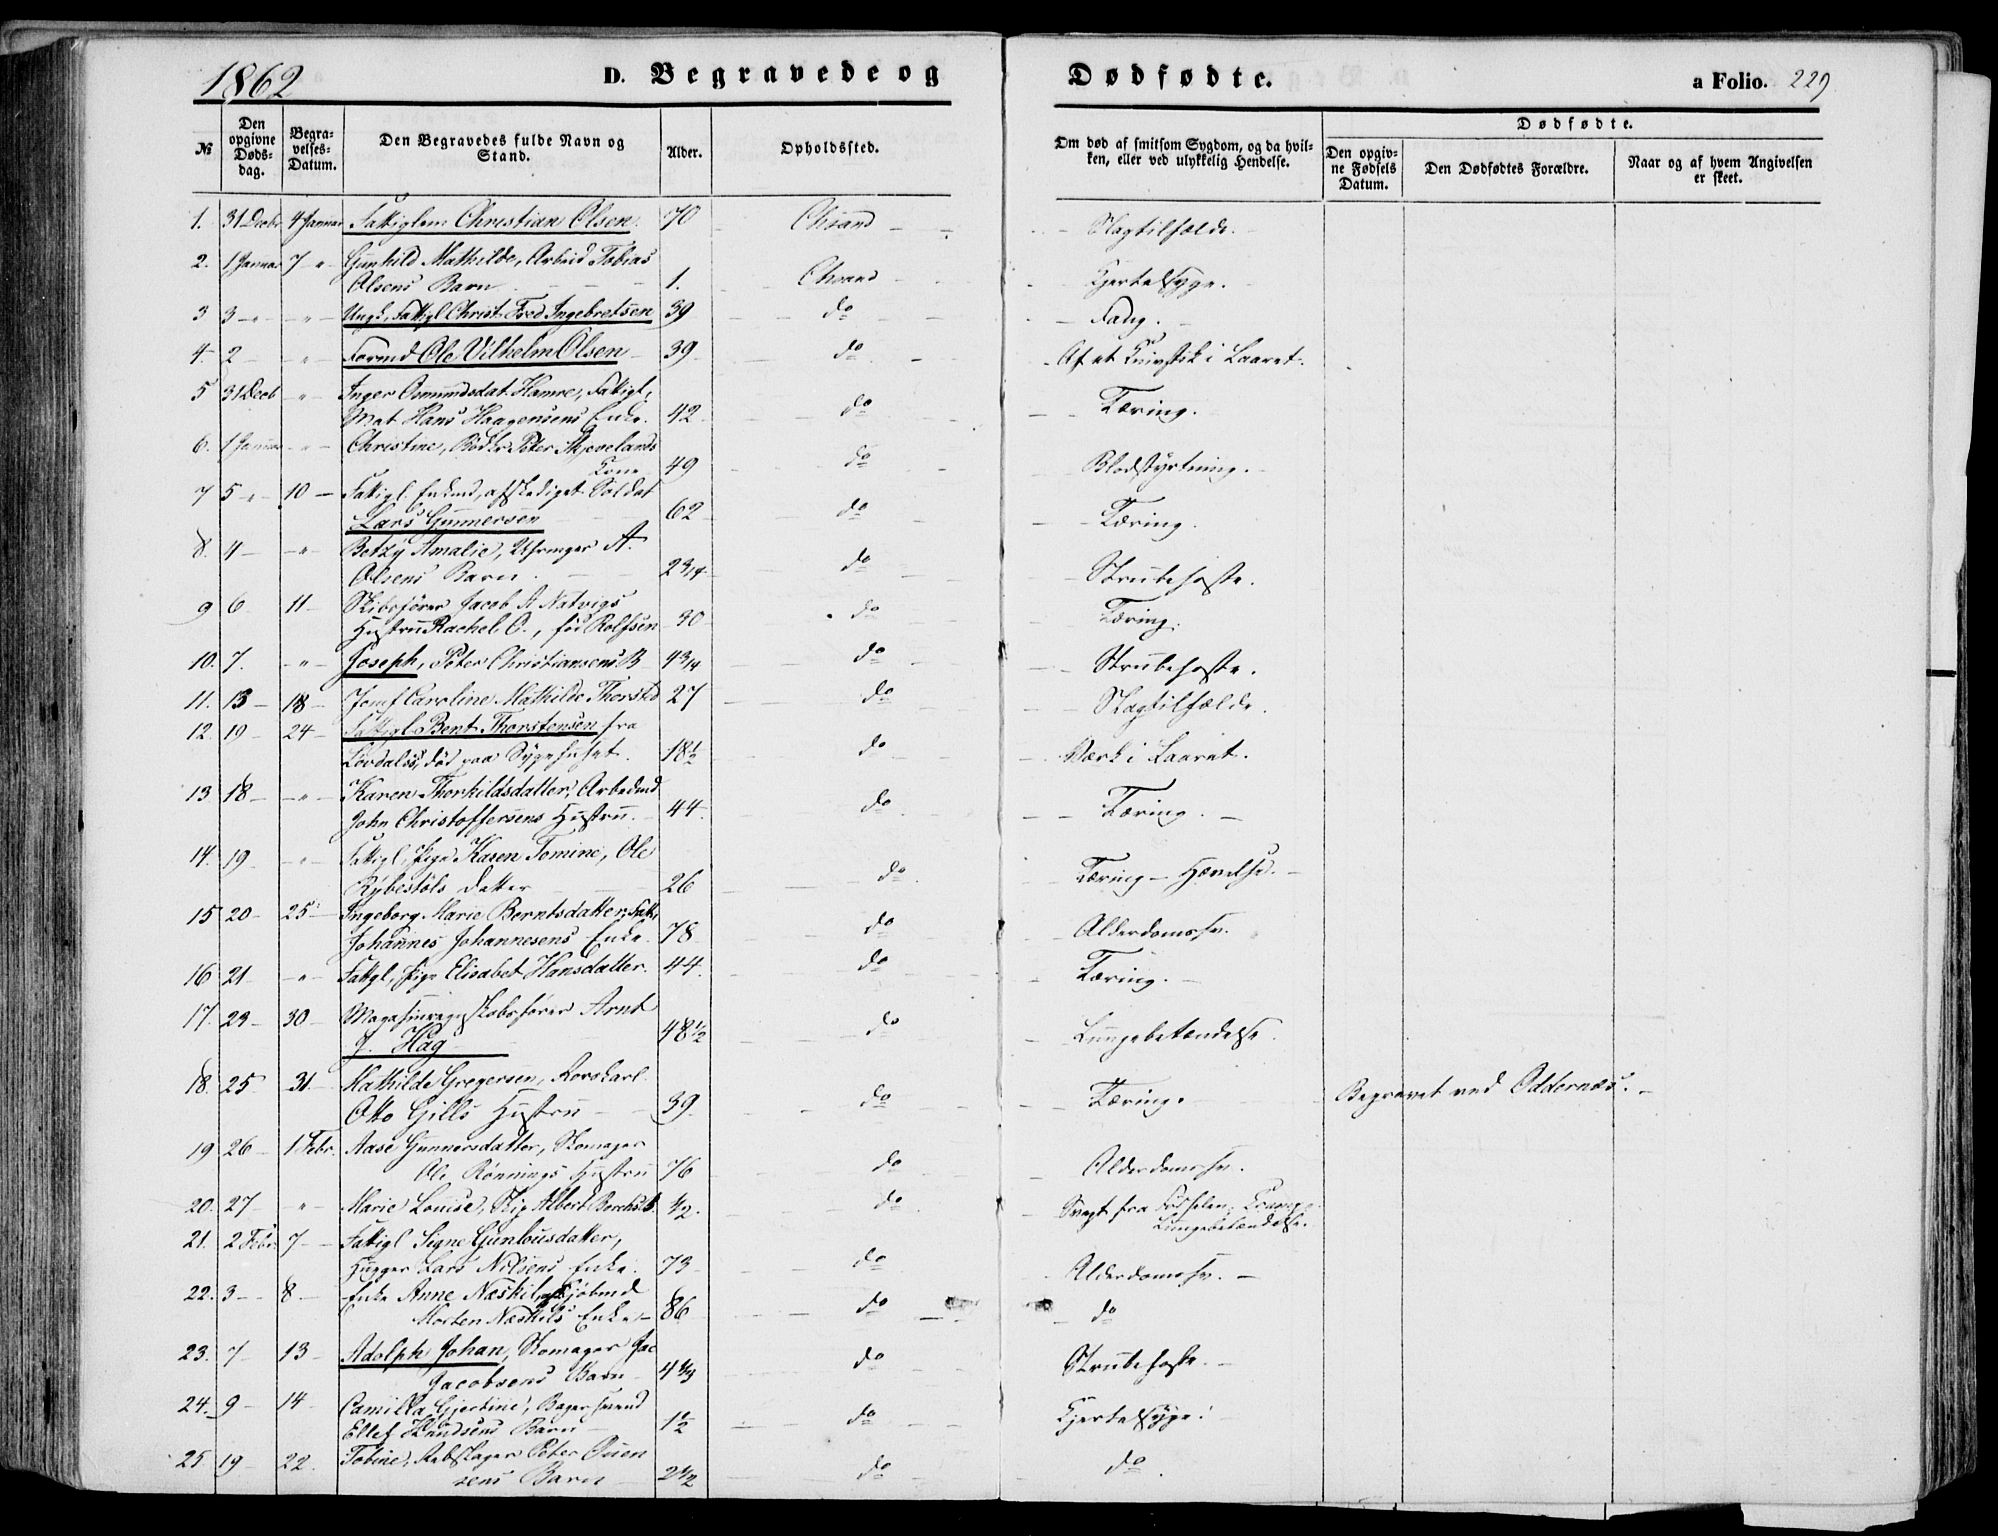 1862 D. Begravede og Dødfødte. a Folio. 229
№ Den opgivne Døds-dag. Begra-velses-Datum. Den Begravedes fulde Navn og Stand. Alder. Opholdssted. Om død af smitsom Sygdom, og da hvil-ken, eller ved ulykkelig Hendelse. Dødfødte. Den opgiv-ne Fødsels Datum. Den Dødfødtes Forældre. Naar og af hvem Angivelsen er skeet.
1. 31 Decbr 4 Januar Fattiglem Christian Olsen. 70 Chsand Slagtilfælde.
2. 1 Januar 7 " Gunhild Mathilde, Arbeid Tobias
Olsens Barn 1. Chsand Kjertelsyge.
3 3 " " Ungk, Fattigl Christ. Fred Ingebretsen 39 do Fang.
4. 2 " Formd Ole Vilhelm Olsen 39 do Af et Knivstik i Laaret.
5 31 Decb " Inger Osmundsdat. Hamre, Fattigl,
Mat Hans Haagensens Enke. 42 do Tæring.
6. 1 Januar " Christine, Bødker Peter Skjevelands
Kone 49 do Blodstyrtning.
7 5 " 10 Fattigl. Enkmd, afskediget Soldat
Lars Gunnersen 62 do Tæring.
8. 4 " Betzy Amalie, A.
Olsens Barn. 2 3/4 do Strubehoste.
9 6 11 Skibsfører Jacob A Natvigs
Hustru Rachel O., fød Rolfsen 30 do Tæring.
10. 7. " Joseph, Peter Christiansens B 4 3/4 do Strubehoste.
11. 13 18 Jomf Caroline Mathilde Thorsted 27 do Slagtilfælde.
12. 19 24 Fattigl. Bernt Thorstensen fra
død paa Sygehuset. 18 1/2 do Værk i Laaret.
13 18 " Karen Thorkildsdatter, Arbedmd
John Christoffersens Hustru. 44 do Tæring.
14. 19 " Fattigl, Pige Karen Tomine, Ole
Rybestøls datter 26 do Tæring - Hævelse.
15 20 25 Ingeborg Marie Berntsdatter, Fatt,
Johannes Johannesens Enke. 78 do Alderdomssv.
16 21 " Fattgl, Pige Elisabet Hansdatter. 44. do Tæring.
17. 23 30 Arnt
J. Hag 48 1/2 do Lungebetændelse.
18. 25 31. Mathilde Gregersen, Rorskarl
Otto Gills Hustru 39 do Tæring. Begravet ved Oddernæs.
19 26 1 Febr. Aase Gunnersdatter, Skomager
Ole Rønnings Hustru 76 do Alderdomssv.
20. 27 " Marie Louise, Skip Albert Borchs B. 1/2. do Svagt fra Fødselen, Krampe
Lungebetændelse.
21. 2 Febr. 7 Fattigl Signe Gunlousdatter,
Hugger Lars Nilsens Enke. 73 do Alderdomssv.
22. 3 8 Enke Anne Næskil, Kjøbmd
Morten Næskils Enke 86 do do
23. 7 13 Adolph Johan, Skomager Jac
Jacobsens Barn 4 1/3 do Strubehoste.
24. 9 14 Camilla Gjertine, Bagersvend
Ellef Knudsens Barn 1 1/2 do Kjertelsyge.
25 19 22. Tobine, Rebslager Peter Ouen
sens Barn 2 1/2 do do.